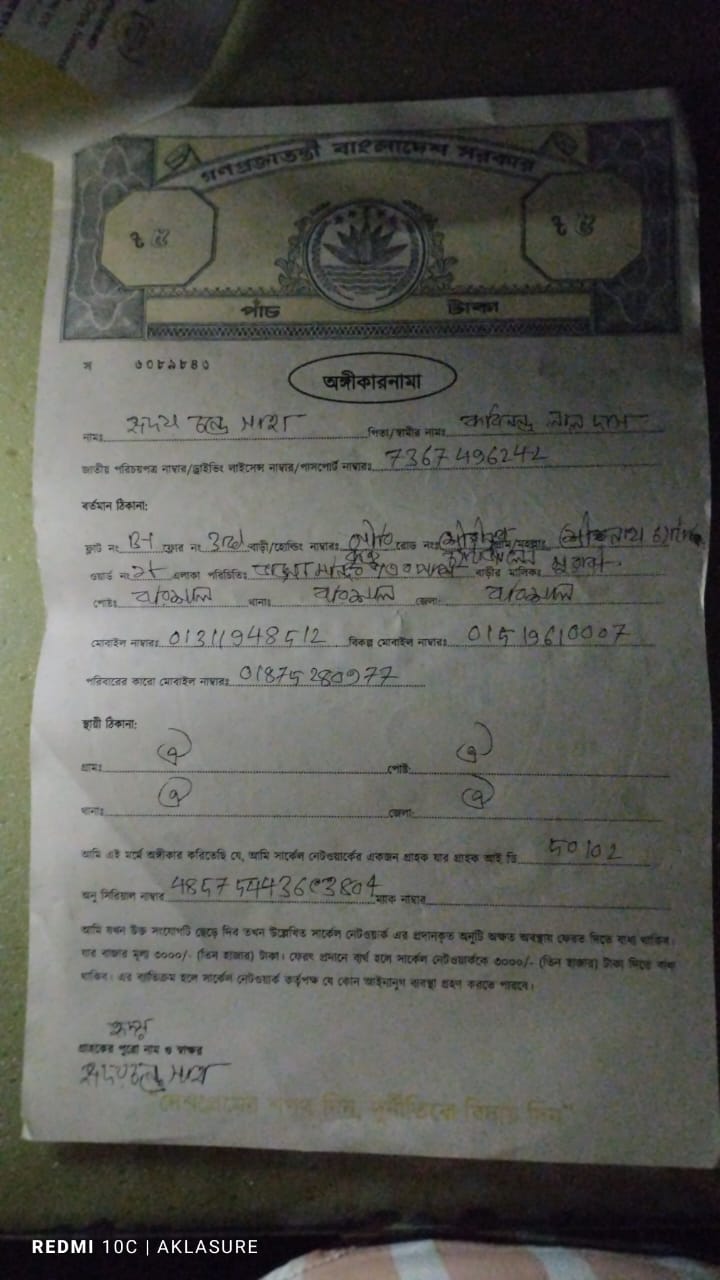 গণপ্রজাতন্ত্রী বাংলাদেশ সরকার
৳ ৫ ৳ ৫
পাঁচ টাকা
স ৬০৮৯৮৪৬
অঙ্গীকারনামা
নামঃ হৃদয় চন্দ্র সাহা পিতা/স্বামীর নামঃ লাল দাস
জাতীয় পরিচয়পত্র নাম্বার/ড্রাইভিং লাইসেন্স নাম্বার/পাসপোর্ট নাম্বারঃ 7367496242
বর্তমান ঠিকানা:
ফ্লাট নং B-1 ফ্লোর নং 3rd বাড়ী/হোল্ডিং নাম্বারঃ রোড নংঃ গ্রাম/মহল্লাঃ
ওয়ার্ড নংঃ এলাকা পরিচিতিঃ বাড়ীর মালিকঃ
পোষ্টঃ বরিশাল থানাঃ বরিশাল জেলাঃ বরিশাল
মোবাইল নাম্বারঃ 01311948512 বিকল্প মোবাইল নাম্বারঃ 01519610007
পরিবারের কারো মোবাইল নাম্বারঃ 01875280977
স্থায়ী ঠিকানা:
গ্রামঃ ঐ পোষ্ট: ঐ
থানাঃ ঐ জেলা: ঐ
আমি এই মর্মে অঙ্গীকার করিতেছি যে, আমি সার্কেল নেটওয়ার্কের একজন গ্রাহক যার গ্রাহক আই ডি 50102
অনু সিরিয়াল নাম্বার ম্যাক নাম্বার
আমি যখন উক্ত সংযোগটি ছেড়ে দিব তখন উল্লেখিত সার্কেল নেটওয়ার্ক এর প্রদানকৃত অনুটি অক্ষত অবস্থায় ফেরত দিতে বাধ্য থাকিব।
যার বাজার মূল্য ৩০০০/- (তিন হাজার) টাকা। ফেরৎ প্রদানে ব্যর্থ হলে সার্কেল নেটওয়ার্ককে ৩০০০/- (তিন হাজার) টাকা দিতে বাধ্য
থাকিব। এর ব্যতিক্রম হলে সার্কেল নেটওয়ার্ক কর্তৃপক্ষ যে কোন আইনানুগ ব্যবস্থা গ্রহণ করতে পারবে।
হৃদয়
গ্রাহকের পুরো নাম ও স্বাক্ষর
হৃদয় চন্দ্র সাহা
"দেশপ্রেমের শপথ নিন, দুর্নীতিকে বিদায় দিন"
REDMI 10C | AKLASURE